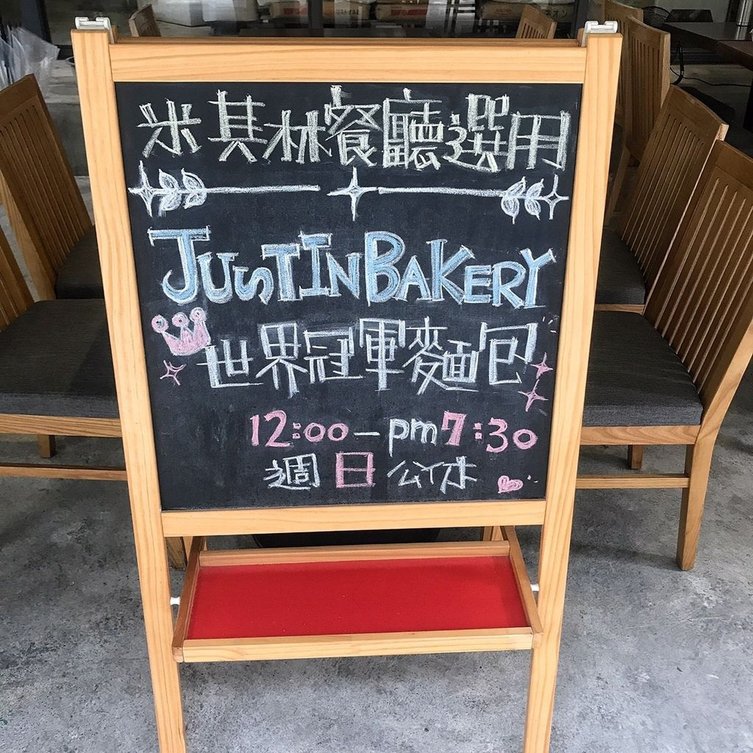 米其林餐廳選用
JUSTIN BAKERY
世界冠軍麵包
12:00 — pm 7:30
週日公休